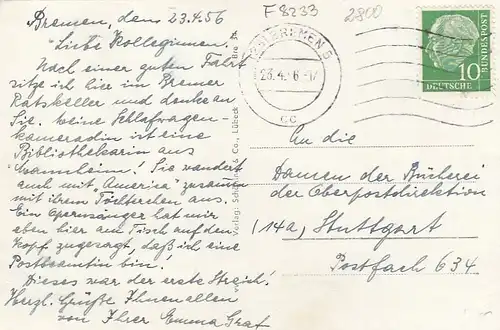 Bremen, den 23.4.56
Liebe Kolleginnen!
Nach einer guten Fahrt
sitze ich hier im Bremer
Ratskeller und denke an
Sie. Meine Schlafwagen-
kameradin ist eine
Bibliothekarin aus
Mannheim! Sie wandert
auch mit "Amerika" zusammen
mit ihrem Töchterchen aus.
Ein Opernsänger hat mir
eben hier am Tisch auf den
Kopf zugesagt, daß ich eine
Postbeamtin bin!
Dieses war der erste Streich!
Herzl. Grüße Ihnen allen
von Ihrer Emma Graf
F 8233
2800
BREMEN 5
23.4.56-17
cc
10
DEUTSCHE
BUNDESPOST
Verlag: Schöning & Co., Lübeck
Bre
An die
Damen der Bücherei
der Oberpostdirektion
(14a) Stuttgart
Postfach 634